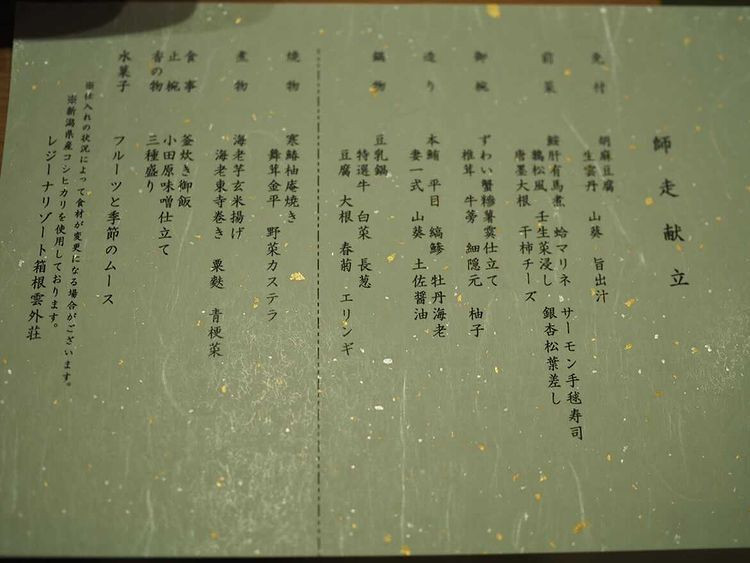 師走献立
先付
胡麻豆腐
生雲丹 山葵 旨出汁
前菜
鮟肝有馬煮 蛤マリネ サーモン手毬寿司
鶏松風 壬生菜浸し 銀杏松葉差し
唐墨大根 干柿チーズ
御椀
ずわい蟹糝薯霙仕立て
椎茸 牛蒡 細隠元 柚子
造り
本鮪 平目 縞鯵 牡丹海老
妻一式 山葵 土佐醤油
鍋物
豆乳鍋
特選牛 白菜 長葱
豆腐 大根 春菊 エリンギ
焼物
寒鰆柚庵焼き
舞茸金平 野菜カステラ
煮物
海老芋玄米揚げ
海老東寺巻き 粟麩 青梗菜
食事
釜炊き御飯
止椀
小田原味噌仕立て
香の物
三種盛り
水菓子
フルーツと季節のムース
※仕入れの状況によって食材が変更になる場合がございます。
※新潟県産コシヒカリを使用しております。
レジーナリゾート箱根雲外荘